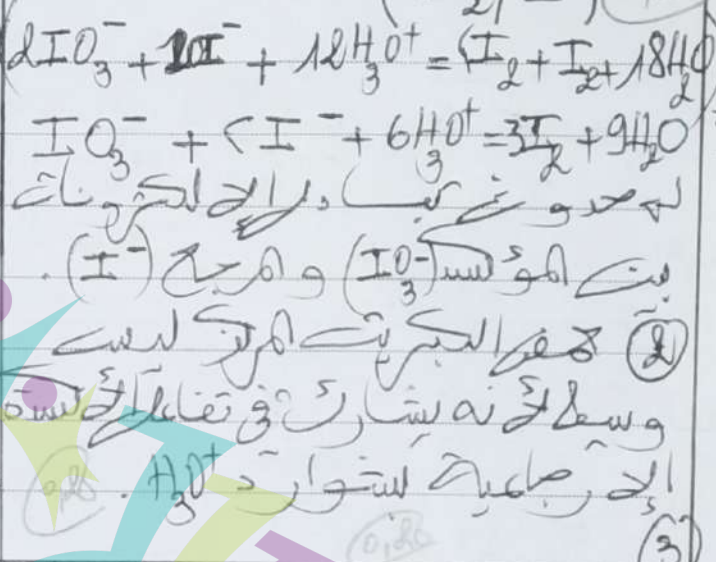 2IO₃⁻ + 10I⁻ + 12H₃O⁺ = 5I₂ + I₂ + 18H₂O
IO₃⁻ + 5I⁻ + 6H₃O⁺ = 3I₂ + 9H₂O
الإلكترونات
بين المؤكسد (IO₃⁻) و المرجع (I⁻).
② حمض الكبريت المركز ليس
وسيط لأنه يشارك في تفاعل الأكسدة
الإرجاعية بشوارد H₃O⁺. 0,25
0,25
③